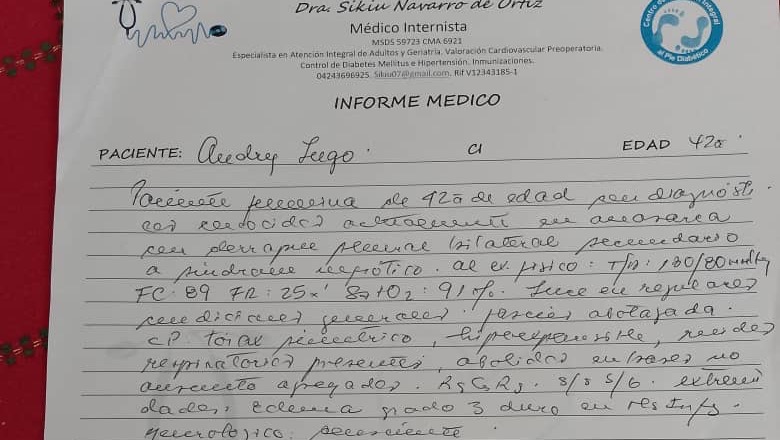 Dra. Sikiu Navarro de Ortiz
Médico Internista
MSDS 59723 CMA 6921
Especialista en Atención Integral de Adultos y Geriatría. Valoración Cardiovascular Preoperatoria.
Control de Diabetes Mellitus e Hipertensión. Inmunizaciones.
04243696925. Sikiu07@gmail.com. Rif V12343185-1
Integral
al Pie Diabético
INFORME MEDICO
PACIENTE: Audrey Lugo. CI EDAD 42a.
Paciente femenina de 42a de edad con diagnósti
cos conocidos actualmente en anasarca
con derrame pleural bilateral secundario
a síndrome nefrótico. al ex. físico: T/A: 130/80 mmHg
FC: 89 FR: 25x' SatO2: 91%. Luce en regulares
condiciones generales. facies abotagada.
CP. torax simétrico, hipoexpansible, ruidos
respiratorios presentes, abolidos en bases no
ausculto agregados. RsCsRs. S/S S/G. extremi
dades: Edema grado 3 duro en
neurológico: consciente